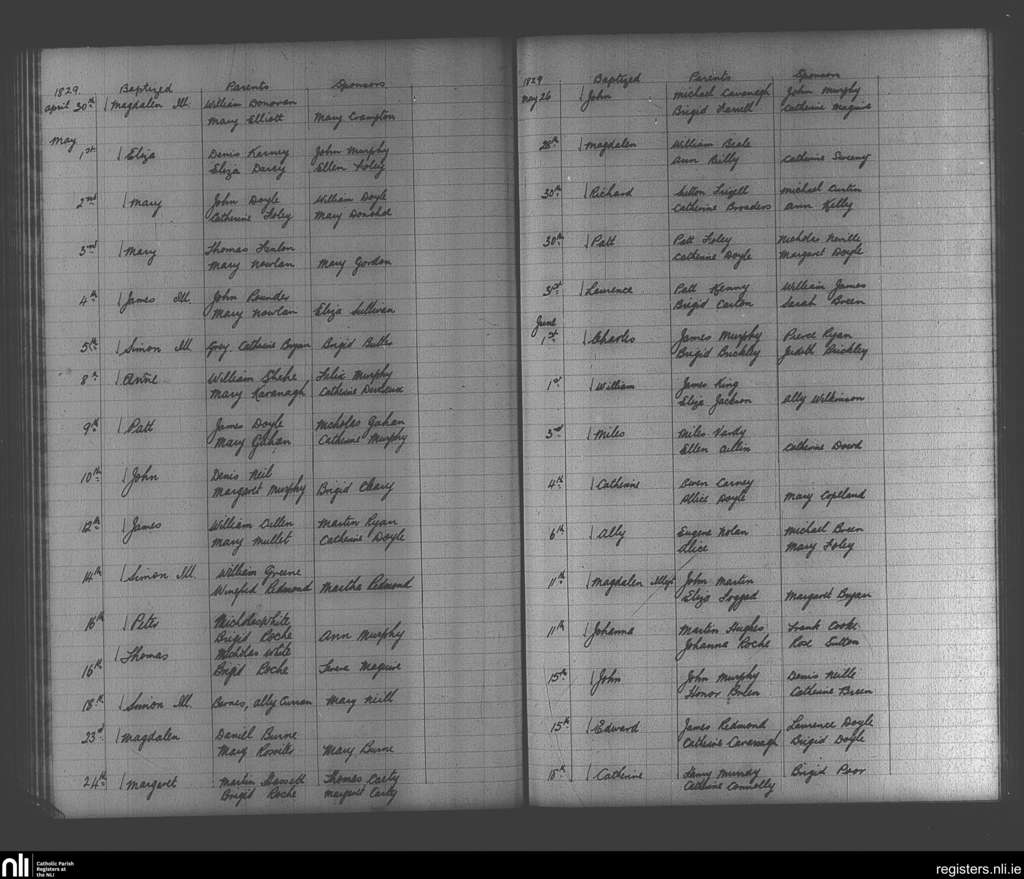 1829 Baptized Parents Sponsors
April 30th Magdalen Ill. William Donovan
Mary Elliott Mary Crampton
May
1st Eliza Denis Karney John Murphy
Eliza Darcy Ellen Foley
2nd Mary John Doyle William Doyle
Catherine Foley Mary Donohd
3rd Mary Thomas Fenlon
Mary Nowlan Mary Gordon
4th James Ill. John Pounder
Mary Nowlan Eliza Sullivan
5th Simon Ill Grey. Catherine Bryan Brigid Butler
8th Anne William Shehe Felix Murphy
Mary Kavanagh Catherine Devereux
9th Patt James Doyle Nicholas Gahan
Mary Gahan Catherine Murphy
10th John Denis Neil
Margaret Murphy Brigid Cleary
12th James William Cullen Martin Ryan
Mary Mullet Catherine Doyle
14th Simon Ill. William Greene
Winefred Redmond Martha Redmond
16th Peter Nicholas White
Brigid Roche Ann Murphy
Thomas Nicholas White
16th Brigid Roche Teresa Maguire
18th Simon Ill. Bernes, Ally Curran Mary Neill
23d Magdalen Daniel Burne
Mary Rossiter Mary Burne
24th Margaret Martin Hassett Thomas Carty
Brigid Roche Margaret Carty
1829 Baptized Parents Sponsors
May 26 John Michael Cavanagh John Murphy
Brigid Farrell Catherine Maguire
28th Magdalen William Beale
Ann Reilly Catherine Sweeny
30th Richard Sutton Frizell Michael Curtin
Catherine Broaders Ann Kelly
30th Patt Patt Foley Nicholas Neville
Catherine Doyle Margaret Doyle
31st Laurence Patt Kenny William James
Brigid Carton Sarah Breen
June
1st Charles James Murphy Pierce Ryan
Brigid Brickley Judith Brickley
1st William James King
Eliza Jackson Ally Wilkinson
3rd Miles Miles Vardy
Ellen Cullin Catherine Dowd
4th Catherine Owen Carney
Allice Doyle Mary Copeland
6th Ally Eugene Nolan Michael Breen
Alice Mary Foley
11th Magdalen Illegt John Martin
Eliza Foggad Margaret Bryan
11th Johanna Martin Hughes Frank Cooke
Johanna Roche Rose Sutton
15th John John Murphy Denis Neille
Honor Brien Catherine Breen
15th Edward James Redmond Laurence Doyle
Catherine Cavanagh Brigid Doyle
18th Catherine Harry Mundy Brigid Poor
Catherine Connolly
nli Catholic Parish
Registers at
the NLI
registers.nli.ie